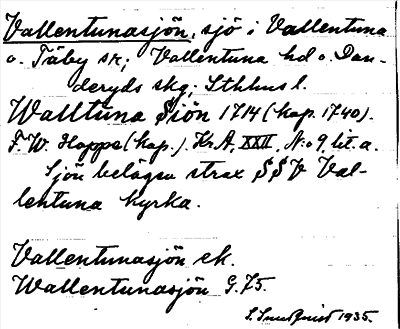 Vallentunasjön, sjö i Vallentuna
o. Täby sk; Vallentuna hd o. Dan-
deryds skg, Sthlms l.
Walltuna Siön 1714 (kop. 1740).
F. W. Hoppe (kop.). Kr. A. XXII, N:o 9, lit. a.
Sjön belägen strax SSV Val-
lentuna kyrka.
Vallentunasjön ek.
Wallentunasjön G. 75.
S. Sundquist 1935.